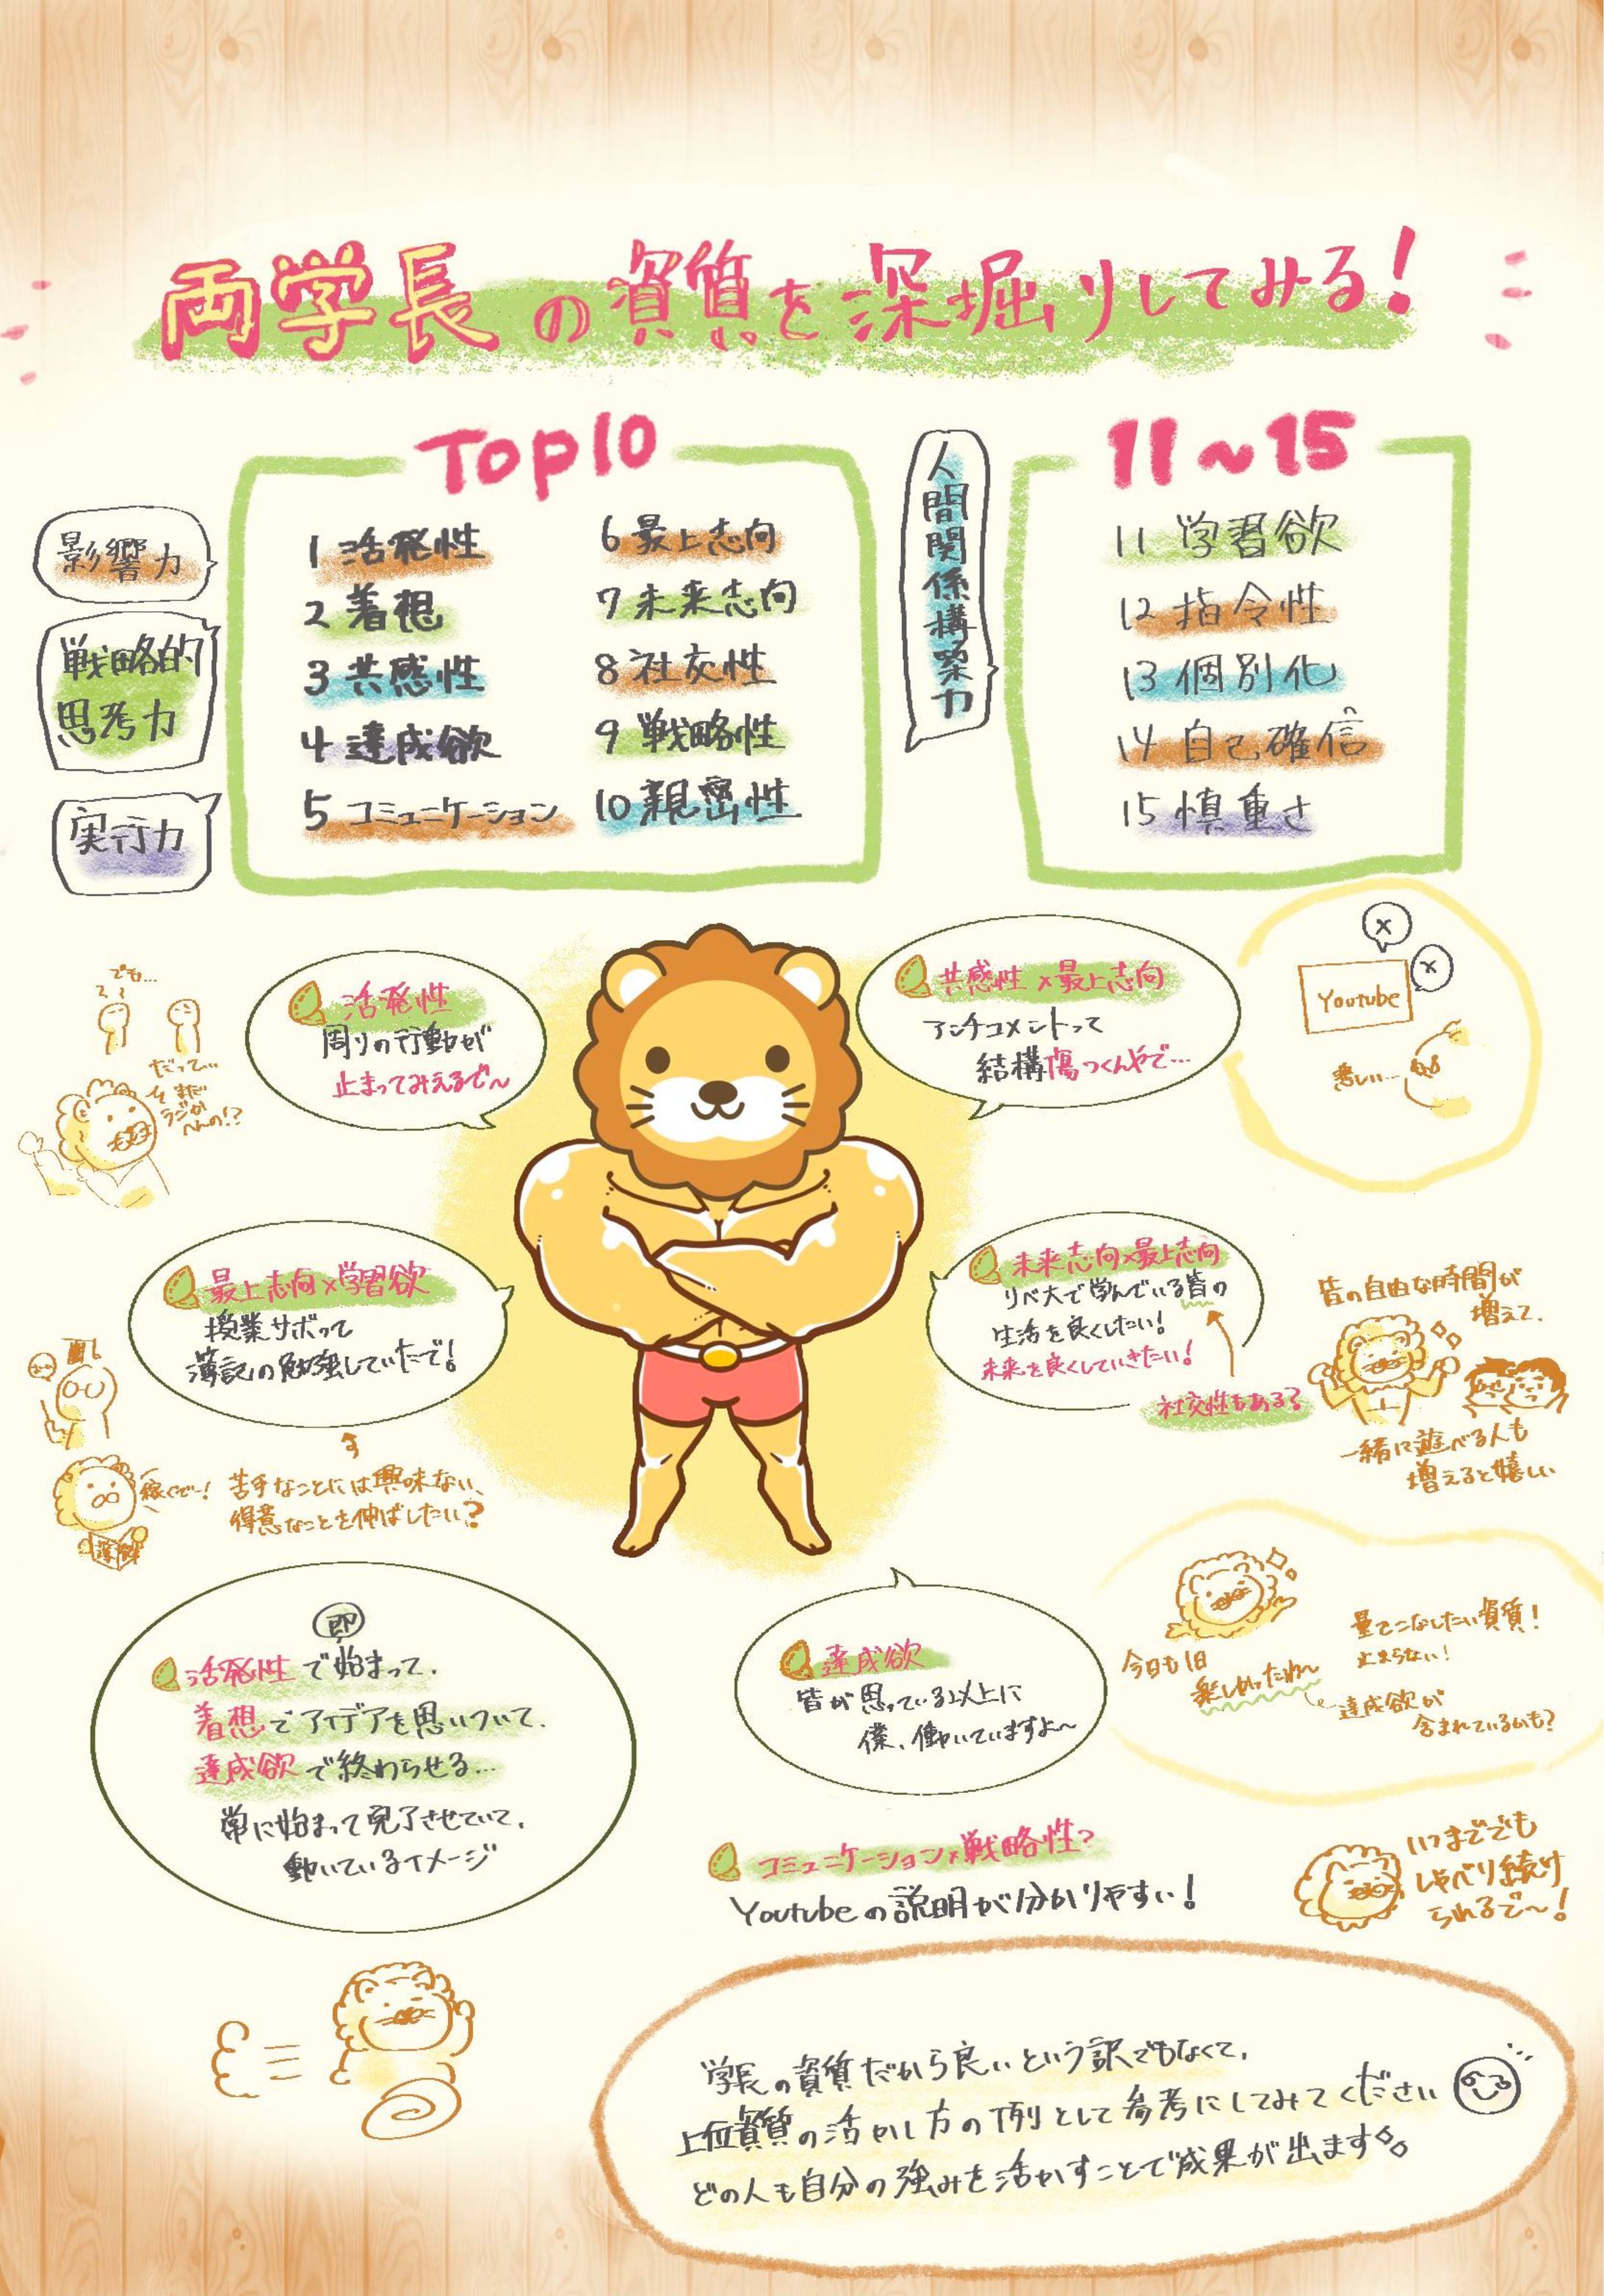 両学長の資質を深堀りしてみる!
Top10
影響力
戦略的
思考力
実行力
1 活発性
2 着想
3 共感性
4 達成欲
5 コミュニケーション
6 最上志向
7 未来志向
8 社交性
9 戦略性
10 親密性
人間関係構築力
11~15
11 学習欲
12 指令性
13 個別化
14 自己確信
15 慎重さ
でも…
だって…
活発性
周りの行動が
止まってみえるで~
共感性×最上志向
アンチコメントって
結構傷つくんやで…
×
×
Youtube
悲しい…
最上志向×学習欲
授業サボって
簿記の勉強していたで!
稼ぐで~!
苦手なことには興味ない、
得意なことを伸ばしたい?
未来志向×最上志向
リベ大で学んでいる皆の
生活を良くしたい!
未来を良くしていきたい!
社交性もある?
皆の自由な時間が
増えて、
一緒に遊べる人も
増えると嬉しい
即
活発性で始まって、
着想でアイデアを思いついて、
達成欲で終わらせる…
常に始まって完了させていて、
動いているイメージ
達成欲
皆が思っている以上に
僕、働いていますよ~
今日も1日
楽しかったわ~
量でこなしたい資質!
止まらない!
達成欲が
含まれているかも?
コミュニケーション×戦略性?
Youtubeの説明が分かりやすい!
いつまででも
しゃべり続け
られるで~!
学長の資質だから良いという訳でもなくて、
上位資質の活かし方の例として参考にしてみてください
どの人も自分の強みを活かすことで成果が出ます